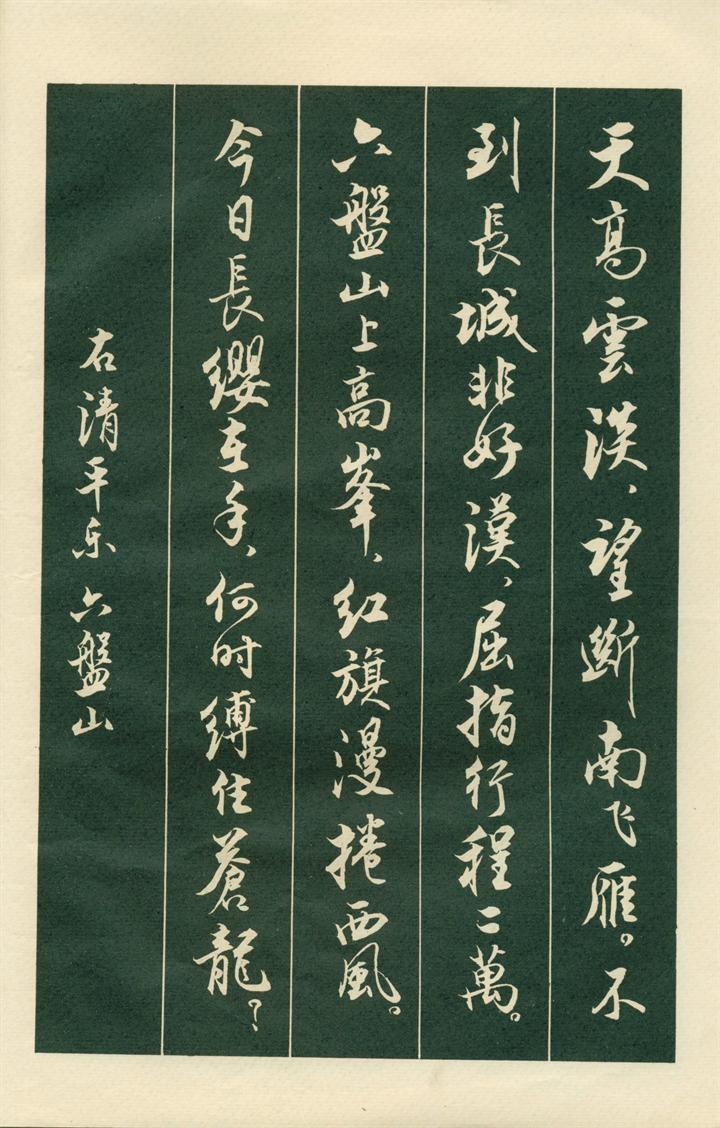 天高雲淡，望斷南飞雁。不
到長城非好漢，屈指行程二萬。
六盤山上高峯，红旗漫捲西風。
今日長纓在手，何时缚住蒼龍？
右清平乐 六盤山